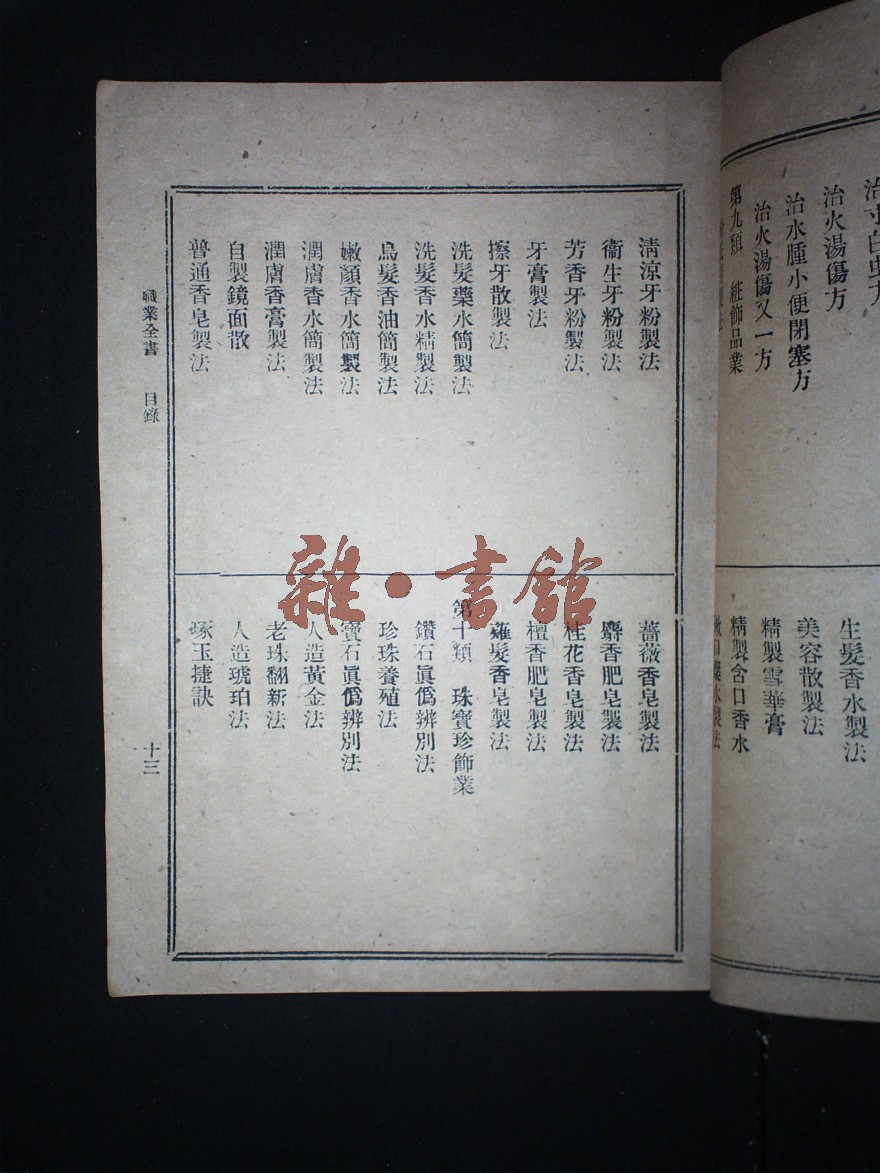 治火湯傷方
治水腫小便閉塞方
治火湯傷又一方
第九類 粧飾品業
生髮香水製法
美容散製法
精製雪華膏
精製含口香水
清涼牙粉製法
衞生牙粉製法
芳香牙粉製法
牙膏製法
擦牙散製法
洗髮藥水簡製法
洗髮香水精製法
烏髮香油簡製法
嫩顏香水簡製法
潤膚香水簡製法
潤膚香膏製法
自製鏡面散
普通香皂製法
薔薇香皂製法
麝香肥皂製法
桂花香皂製法
檀香肥皂製法
薙髮香皂製法
第十類 珠寶珍飾業
鑽石眞僞辨別法
珍珠養殖法
寶石眞僞辨別法
人造黃金法
老珠翻新法
人造琥珀法
琢玉捷訣
職業全書 目錄
十三
雜·書館